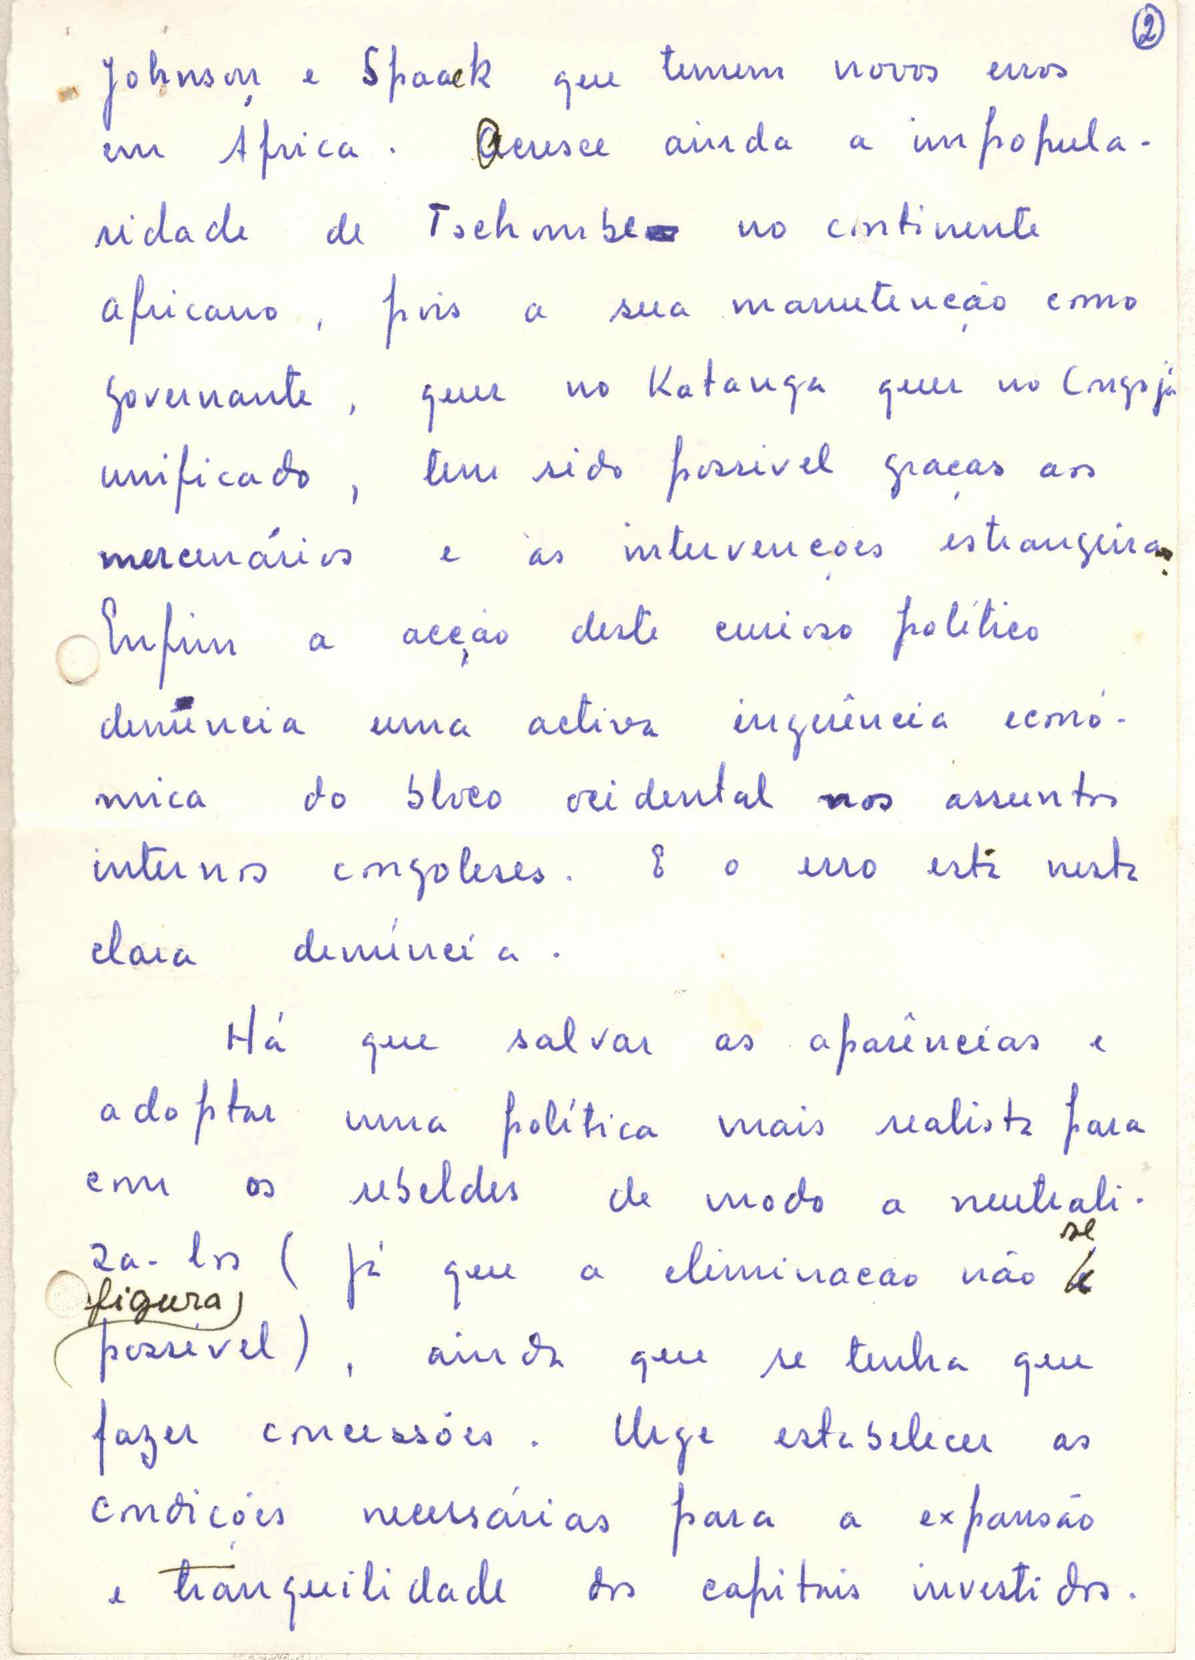 2
Johnson e Spaack que temem novos erros
em África. Acresce ainda a impopula-
ridade de Tschombe no continente
africano, pois a sua manutenção como
governante, quer no Katanga quer no Congo já
unificado, tem sido possivel graças aos
mercenários e às intervenções estrangeiras.
Enfim a acção deste curioso político
denuncia uma activa ingerência econó-
mica do bloco ocidental nos assuntos
internos congoleses. E o erro está nesta
clara denúncia.
Há que salvar as aparências e
adoptar uma política mais realista para
com os rebeldes de modo a neutrali-
se
za-los (já que a eliminacao não é
figura
possível), ainda que se tenha que
fazer concessões. Urge estabelecer as
condições necessárias para a expansão
e tranquilidade dos capitais investidos.